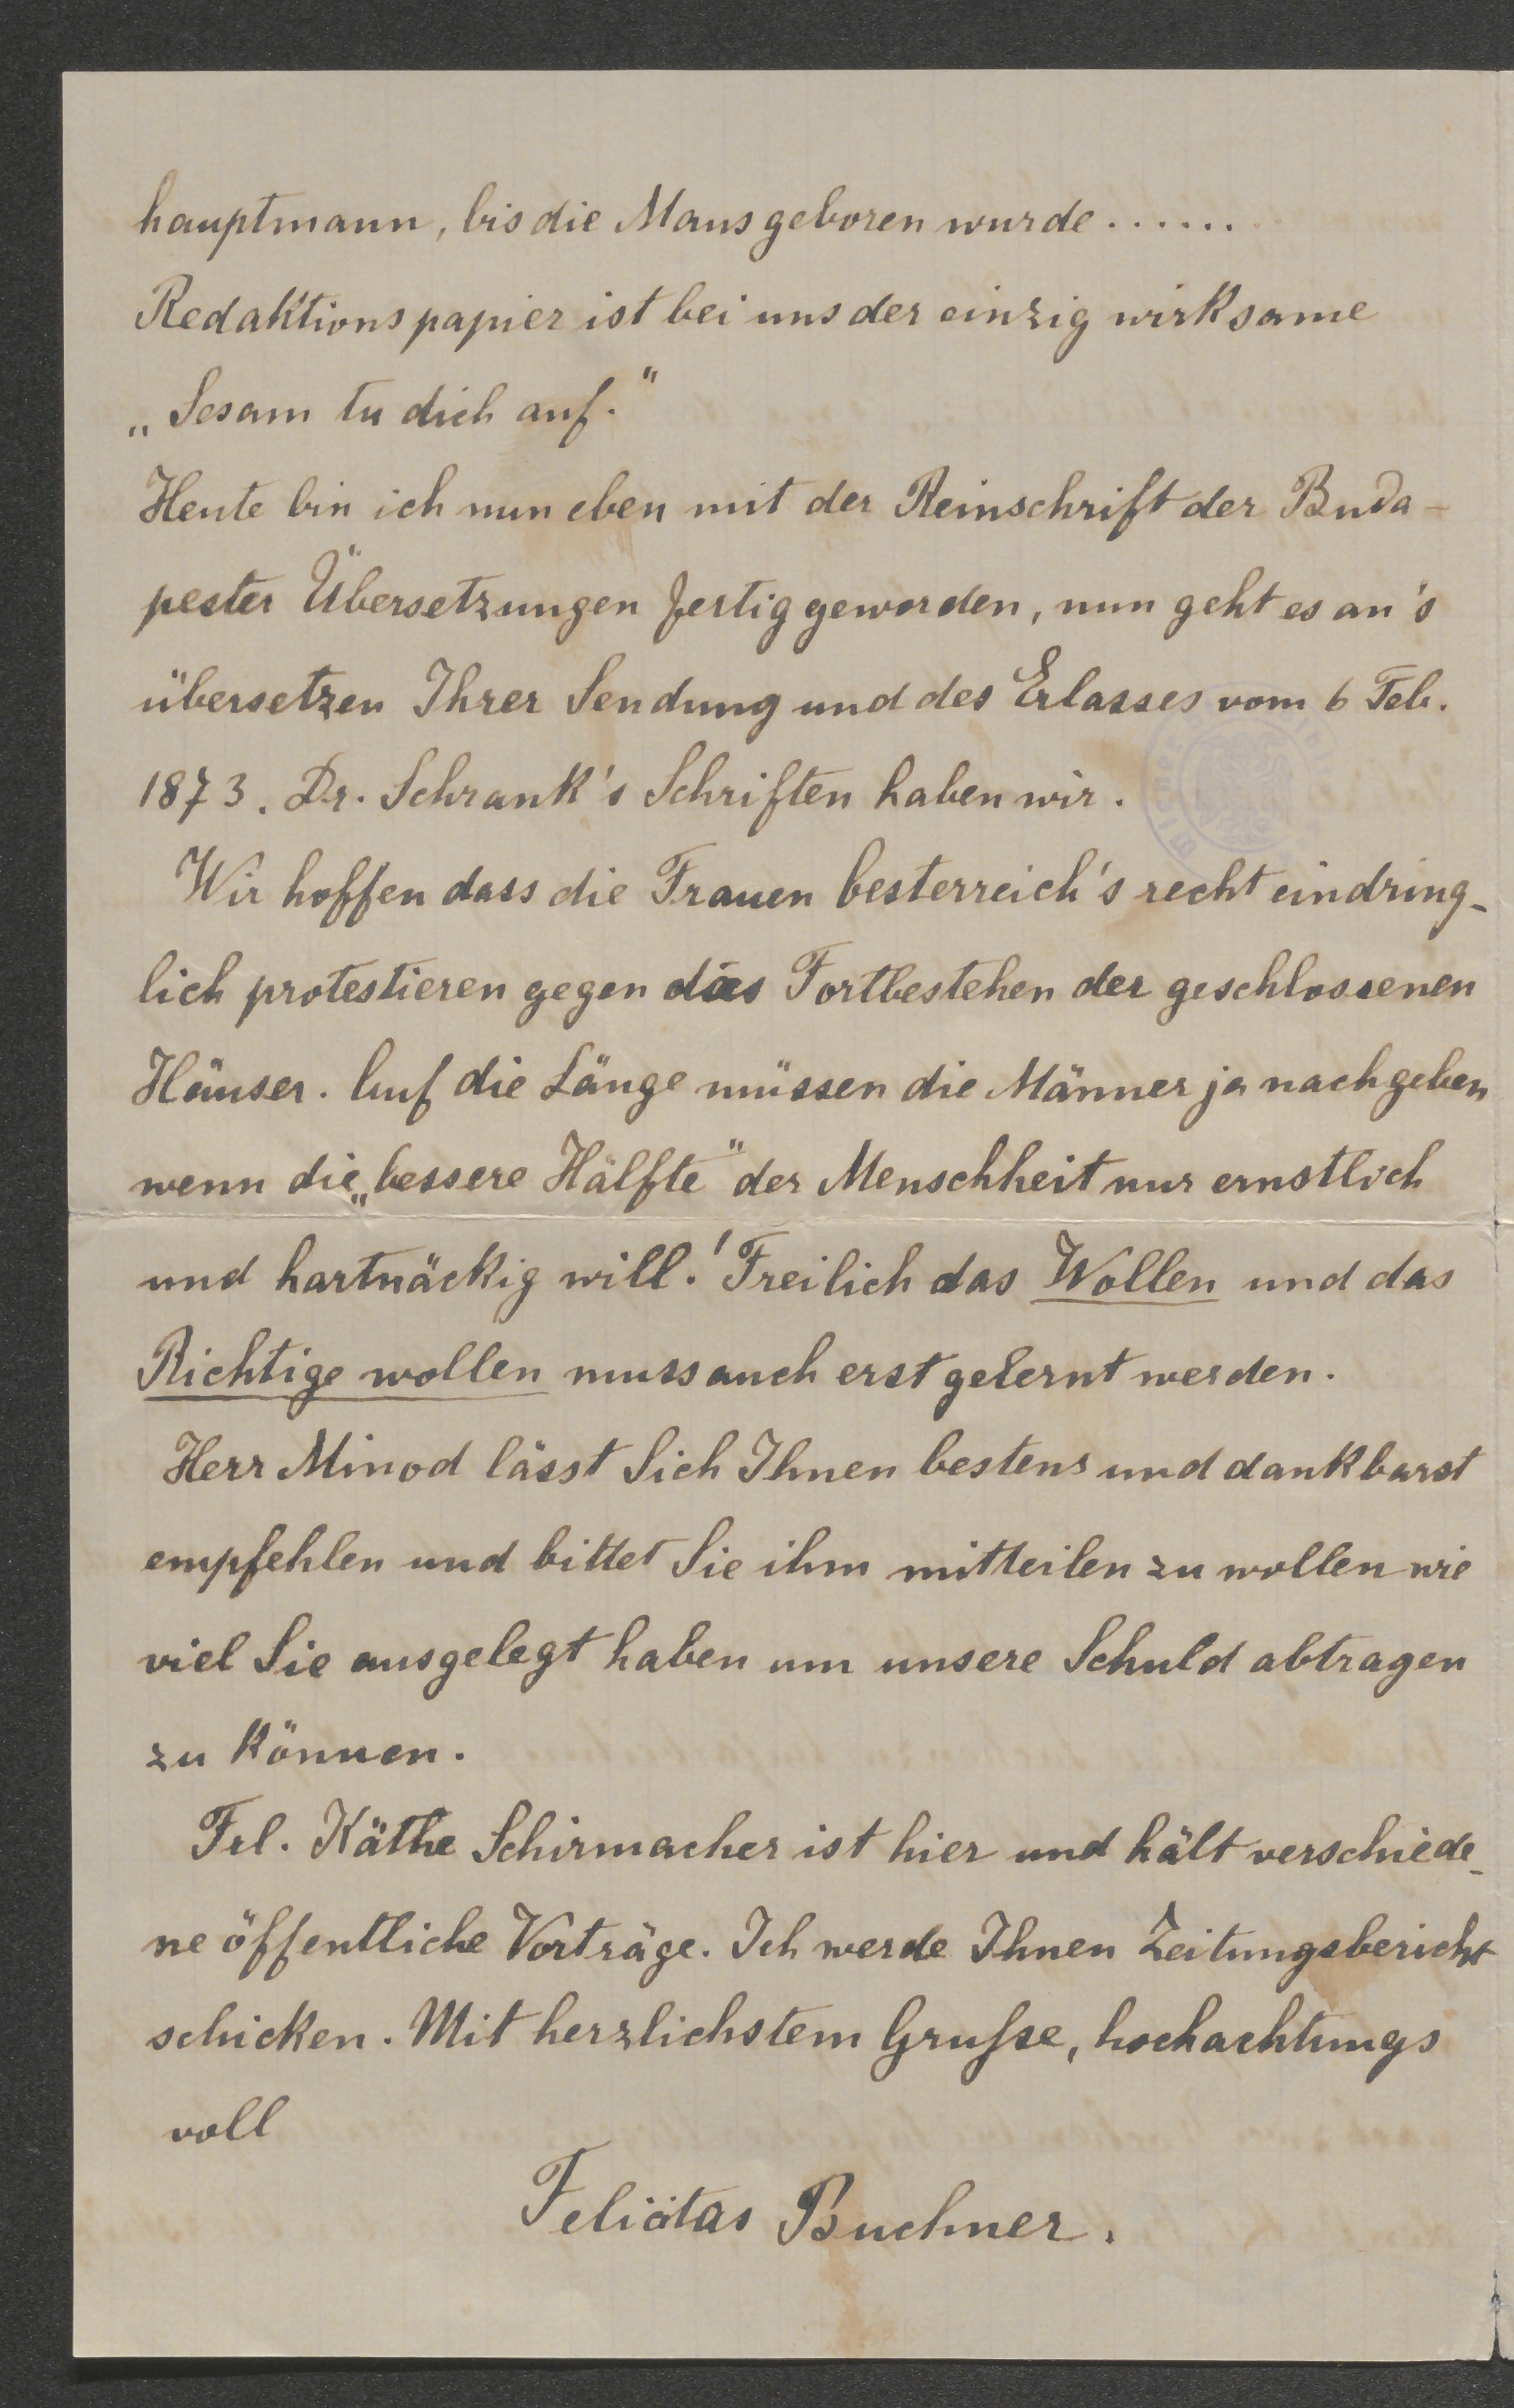 hauptmann, bis die Maus geboren wurde......
Redaktionspapier ist bei uns der einzig wirksame
„Sesam tu dich auf.“
Heute bin ich nun eben mit der Reinschrift der Buda-
pester Übersetzungen fertig geworden, nun geht es an's
übersetzen Ihrer Sendung und des Erlasses vom 6 Feb.
1873. Dr. Schrank's Schriften haben wir.
Wir hoffen dass die Frauen Oesterreich's recht eindring-
lich protestieren gegen das Fortbestehen der geschlossenen
Häuser. Auf die Länge müssen die Männer ja nachgeben
wenn die „bessere Hälfte“ der Menschheit nur ernstlich
und hartnäckig will! Freilich das Wollen und das
Richtige wollen muss auch erst gelernt werden.
Herr Minod lässt Sich Ihnen bestens und dankbarst
empfehlen und bittet Sie ihm mitteilen zu wollen wie
viel Sie ausgelegt haben um unsere Schuld abtragen
zu können.
Frl. Käthe Schirmacher ist hier und hält verschiede-
ne öffentliche Vorträge. Ich werde Ihnen Zeitungsbericht
schicken. Mit herzlichstem Grusse, hochachtungs
voll
Felicitas Buchner.